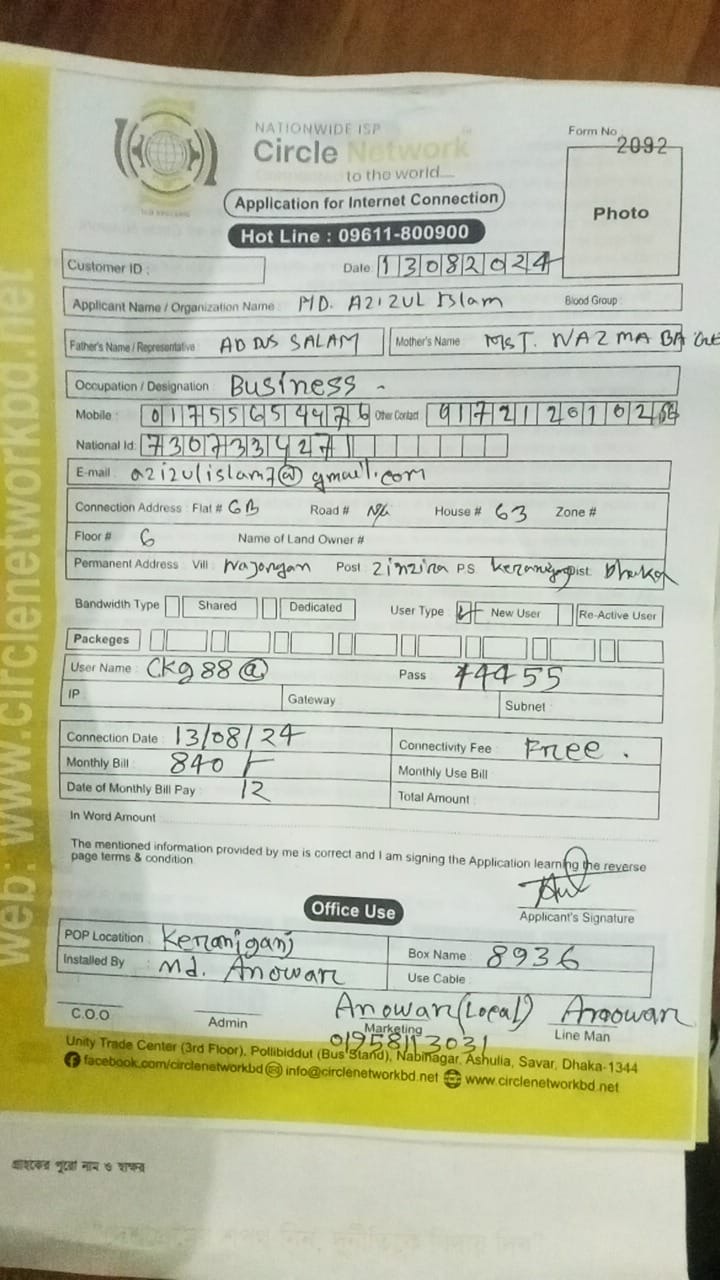 NATIONWIDE ISP
Circle Network
to the world....
Form No 2092
Photo
Application for Internet Connection
Hot Line : 09611-800900
Customer ID :
Date: 13082024
Applicant Name / Organization Name : MD. AZIZUL Islam Blood Group :
Father's Name / Representative : ADDUS SALAM Mother's Name : MST. NAZMA
Occupation / Designation : Business -
Mobile : 01755654476 Other Contact
National Id: 7307334271
E-mail : azizulislam7@gmail.com
Connection Address : Flat # GB Road # N/G House # 63 Zone #
Floor # 6 Name of Land Owner #
Permanent Address : Vill : Post : Zinzira P.S. Dist. Dhaka
Bandwidth Type Shared Dedicated User Type New User Re-Active User
Packeges
User Name : Ckg88@ Pass 44455
IP Gateway Subnet
Connection Date : 13/08/24 Connectivity Fee : Free .
Monthly Bill : 840/- Monthly Use Bill
Date of Monthly Bill Pay : 12 Total Amount
In Word Amount
The mentioned information provided by me is correct and I am signing the Application learning the reverse
page terms & condition.
Applicant's Signature
Office Use
POP Locatition : Keraniganj Box Name : 8936
Installed By : Md. Anowar Use Cable
Anowar (Local) Anowar
C.O.O Admin Marketing Line Man
01958113031
Unity Trade Center (3rd Floor), Pollibiddut (Bus Stand), Nabinagar, Ashulia, Savar, Dhaka-1344
facebook.com/circlenetworkbd info@circlenetworkbd.net www.circlenetworkbd.net
web: www.circlenetworkbd.net
গ্রাহকের পুরো নাম ও স্বাক্ষর